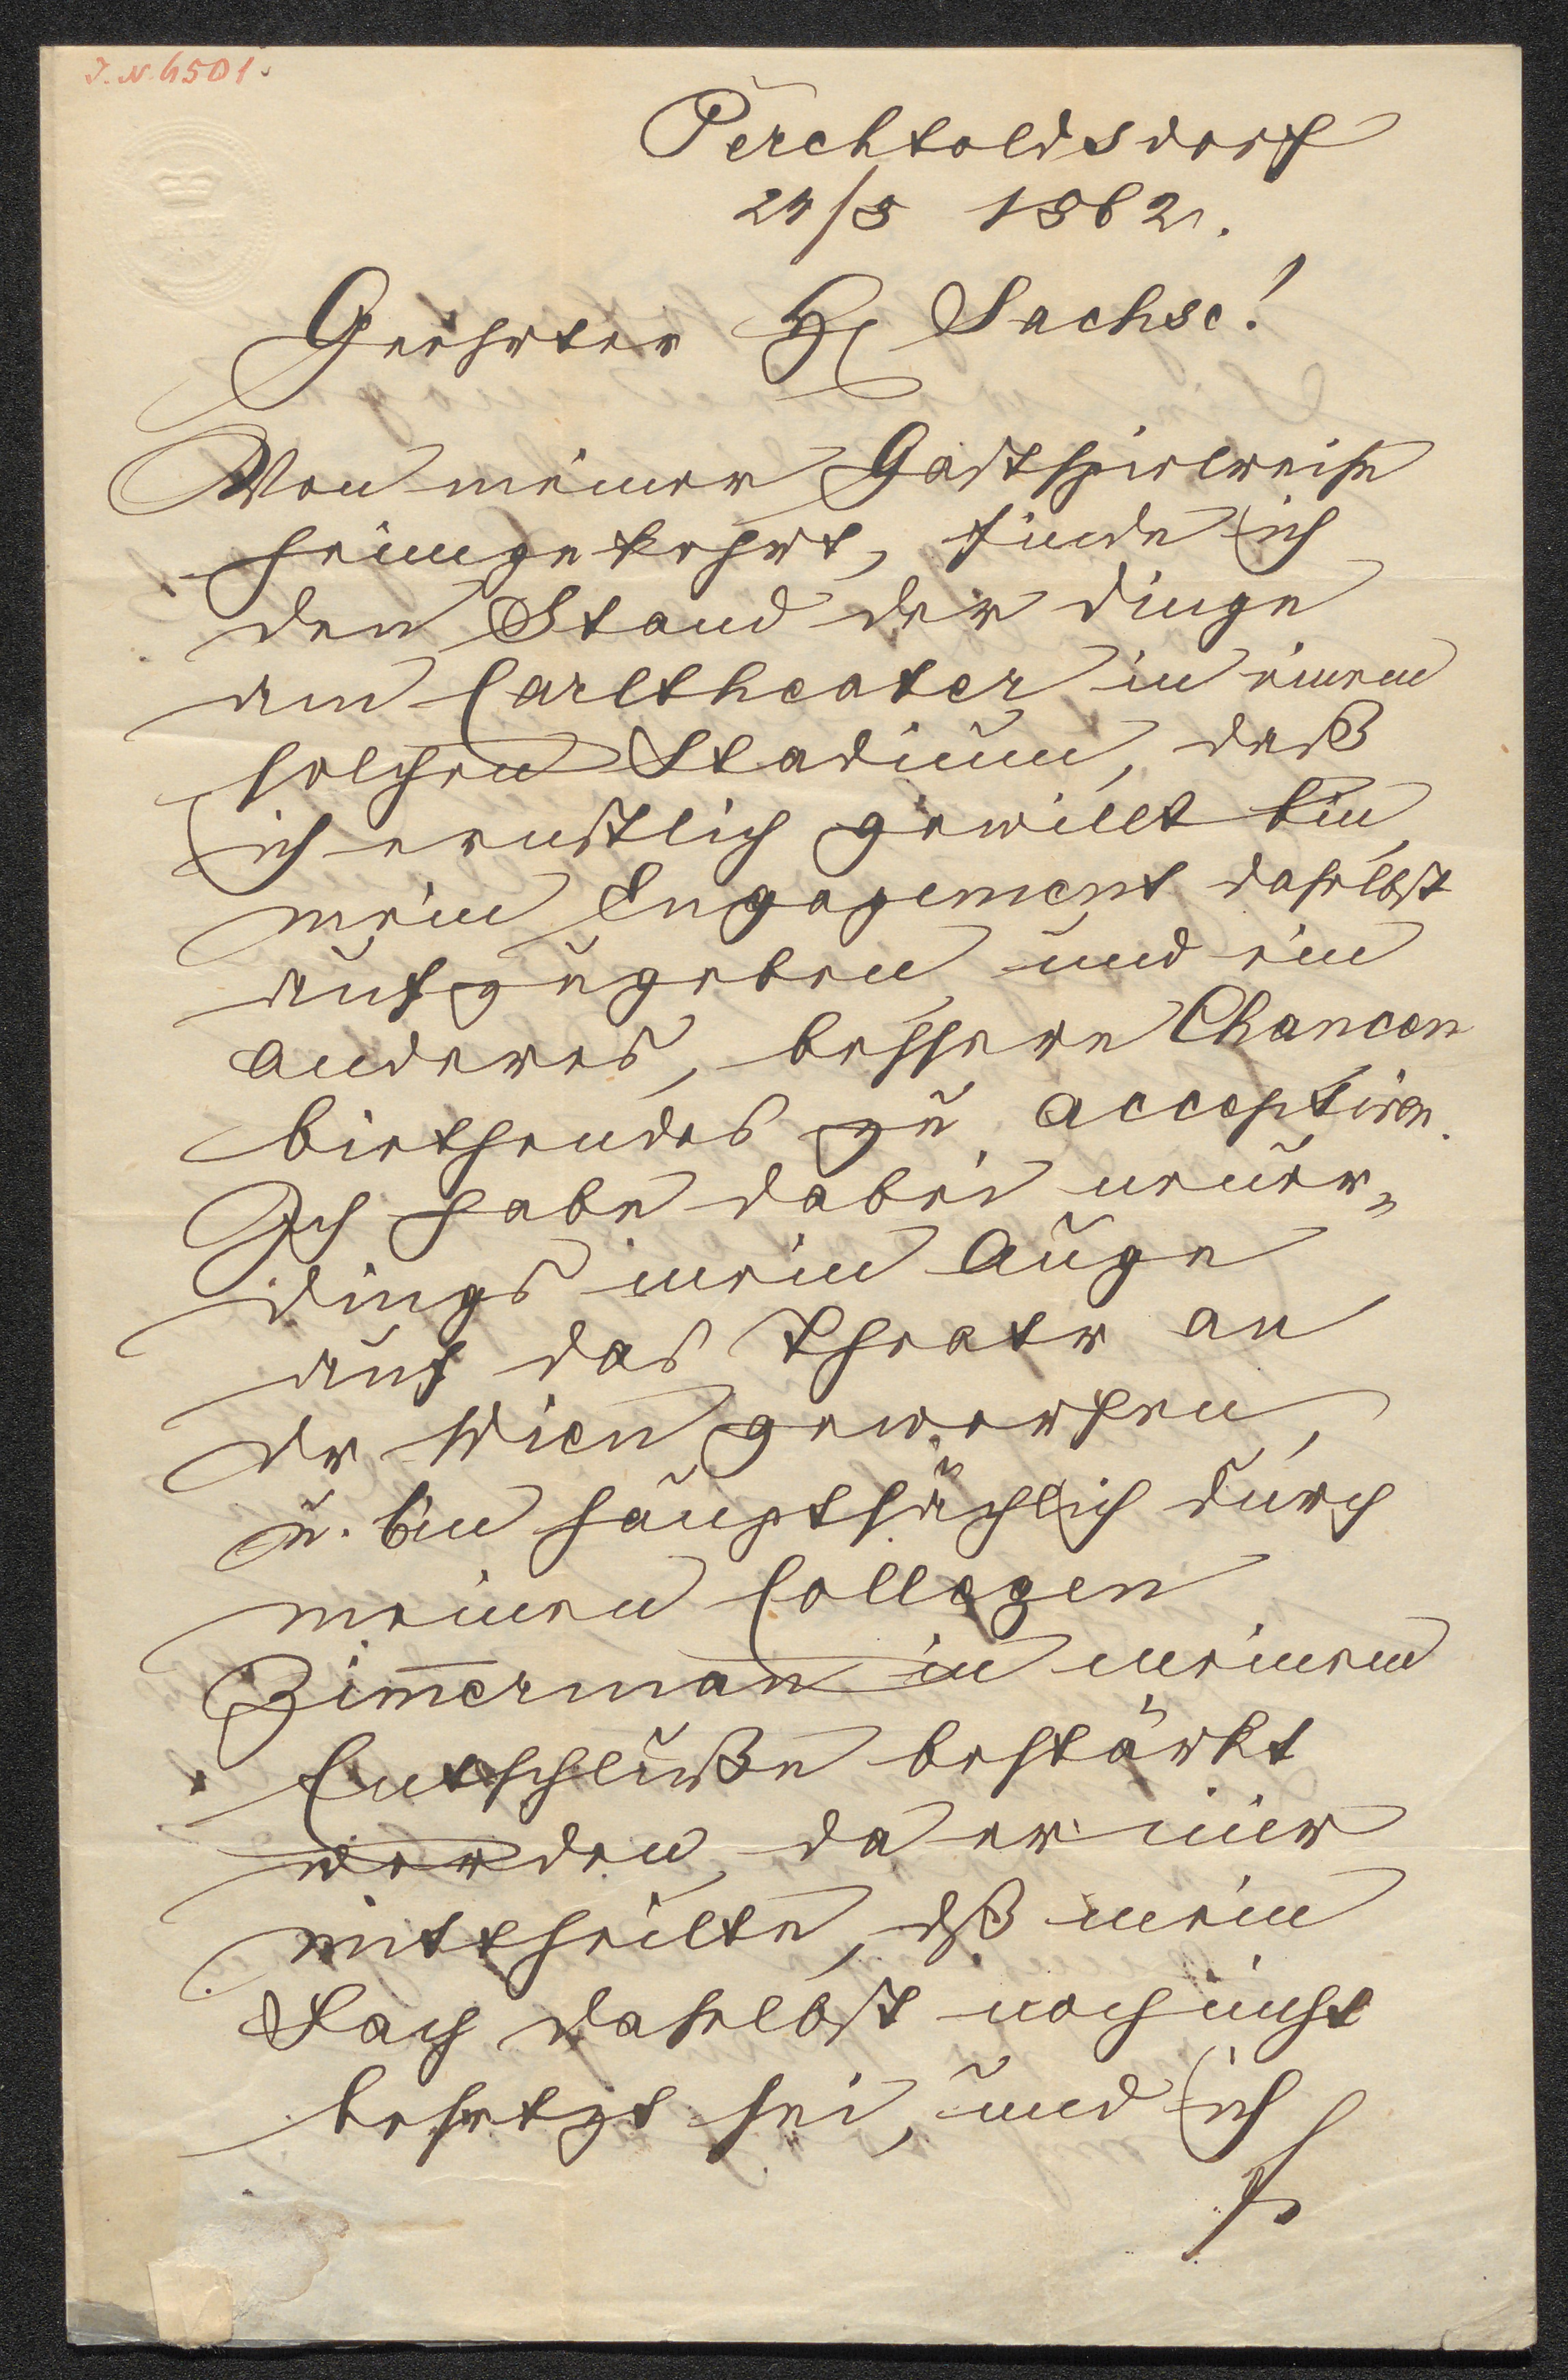 J. N. 6501.
Perchtoldsdorf
24/8 1862.
Geehrter H. Sachse!
Von meiner Gastspielreise
heimgekehrt, finde ich
den Stand der Dinge
am Carltheater in einem
solchen Stadium, daß
ich ernstlich gewillt bin
mein Engagement daselbst
aufzugeben und ein
anderes, bessere Chancen
biethendes zu acceptiren.
Ich habe dabei neuer„
dings mein Auge
auf das Theater an
der Wien geworfen,
u. bin hauptsächlich durch
meinen Collegen
Zimerman̄ in meinem
Entschluße bestärkt
worden, da er mir
mittheilte, dß mein
Fach daselbst noch nicht
besetzt sei, und ich